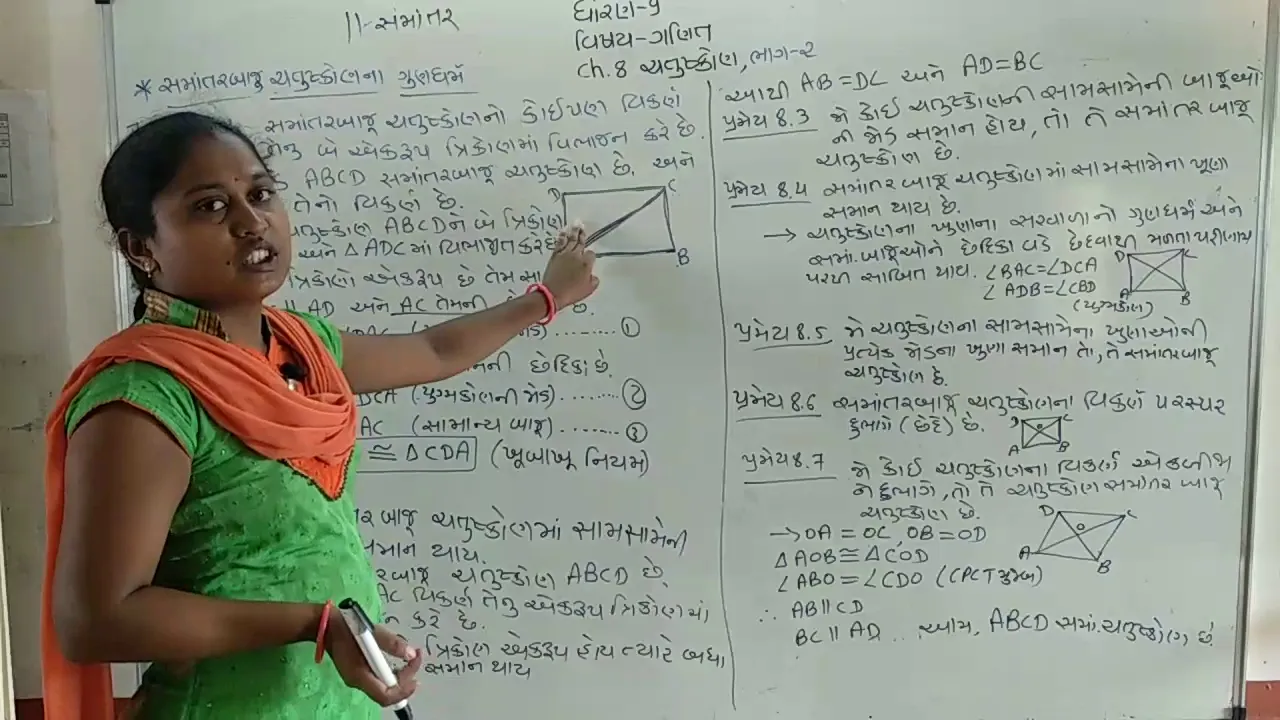 ||-સમાંતર
ધોરણ-૧
વિષય-ગણિત
Ch.8 ચતુષ્કોણ, ભાગ-૨
* સમાંતરબાજુ ચતુષ્કોણના ગુણધર્મ
સમાંતરબાજુ ચતુષ્કોણનો કોઈપણ વિકર્ણ
બે એકરૂપ ત્રિકોણમાં વિભાજન કરે છે.
ABCD સમાંતરબાજુ ચતુષ્કોણ છે. અને
તેનો વિકર્ણ છે.
ABCDને બે ત્રિકોણ
અને △ ADCમાં વિભાજીત કરે
ત્રિકોણો એકરૂપ છે તેમ સા
|| AD અને AC તેમની છે.
......... ①
ની છેદિકા છે.
DCA (યુગ્મકોણની જોડ)........ ②
AC (સામાન્ય બાજુ)........ ③
≅ △CDA (ખૂબાખૂ નિયમ)
D C
B
બાજુ ચતુષ્કોણમાં સામસામેની
સમાન થાય.
ચતુષ્કોણ ABCD છે.
AC વિકર્ણ તેનુ એકરૂપ ત્રિકોણમાં
કરે છે.
ત્રિકોણ એકરૂપ હોય ત્યારે બધા
સમાન થાય
આથી AB=DC અને AD=BC
પ્રમેય 8.3 જો કોઈ ચતુષ્કોણની સામસામેની બાજુઓ
ની જોડ સમાન હોય, તો તે સમાંતર બાજુ
ચતુષ્કોણ છે.
પ્રમેય 8.4 સમાંતરબાજુ ચતુષ્કોણમાં સામસામેના ખૂણા
સમાન થાય છે.
→ ચતુષ્કોણના ખુણાના સરવાળાનો ગુણધર્મ અને
સમાં. બાજુઓને છેદિકા વડે છેદવાથી મળતા પરીણામ
પરથી સાબિત થાય. ∠BAC=∠DCA
∠ADB=∠CBD
(યુગ્મકોણ)
D C
A B
પ્રમેય 8.5 જો ચતુષ્કોણના સામસામેના ખુણાઓની
પ્રત્યેક જોડના ખુણા સમાન તો, તે સમાંતરબાજુ
ચતુષ્કોણ છે.
પ્રમેય 8.6 સમાંતરબાજુ ચતુષ્કોણના વિકર્ણ પરસ્પર
દુભાગે (છેદે) છે.
D C
O
A B
પ્રમેય 8.7 જો કોઈ ચતુષ્કોણના વિકર્ણ એકબીજા
ને દુભાગે, તો તે ચતુષ્કોણ સમાંતર બાજુ
ચતુષ્કોણ છે.
→ OA = OC, OB = OD
△ AOB ≅ △COD
∠ABO = ∠CDO (CPCT મુજબ)
∴ AB || CD
BC || AD .. આમ, ABCD સમાં. ચતુષ્કોણ છે
D C
O
A B